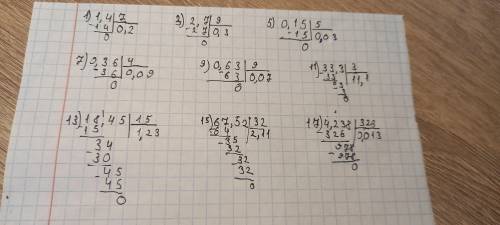 1) 1,4 | 7
-14 | 0,2
0
3) 2,7 | 9
-27 | 0,3
0
5) 0,15 | 5
-15 | 0,03
0
7) 0,36 | 4
-36 | 0,09
0
9) 0,63 | 9
-63 | 0,07
0
11) 33,3 | 3
33 | 11,1
3
3
0
13) 18,45 | 15
15 | 1,23
34
-30
-45
45
0
15) 67,52 | 32
64 | 2,11
-35
32
-32
32
0
17) 4,238 | 326
-326 | 0,013
978
-978
0